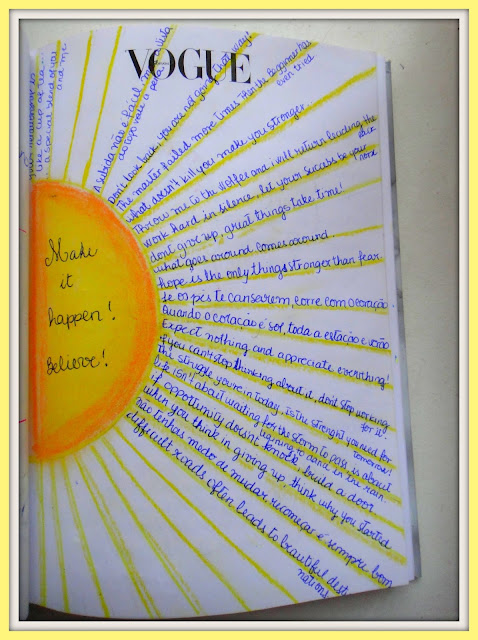 VOGUE
Make
it
happen!
Believe!
like a cup of tea...
a special blend of you
and me
A subida não é fácil, mas a vista
do topo vale a pena
Don't look back, you are not going that way!
The master failed more times than the beginner has
even tried
what doesn't kill you make you stronger..
Throw me to the Wolfes and i will return leading the
pack
work hard in silence, let your success be your
noise
don't give up, great things take time!
what goes around, comes around
hope is the only things stronger than fear
se os pés te cansarem, corre com o coração.
Quando o coração é sol, toda a estação é verão
Expect nothing and appreciate everything!
if you can't stop thinking about it, don't stop working
for it!
the struggle you're in today, is the strenght you need for
tomorrow!
life isn't about waiting for the storm to pass is about
learning to dance in the rain
if opportunity doesn't knock, build a door
when you think in giving up, think why you started
não tenhas medo de mudar, recomeçar é sempre bom
difficult roads often leads to beautiful desti
nations